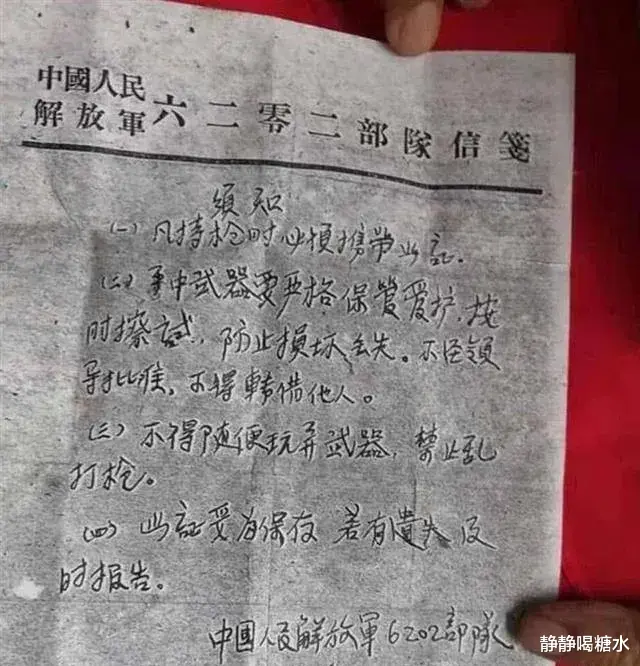 中國人民
解放軍六二零二部隊信箋
須知
(一) 凡持枪时必損携带此証.
(二) 手中武器要严格保管爱护,按
时擦試,防止損坏丢失。不经領
导批准,不得轉借他人。
(三) 不得随便玩弄武器,禁止乱
打枪。
(四) 此証妥为保存 若有遺失 及
时报告。
中國人民解放軍6202部隊
静静喝糖水